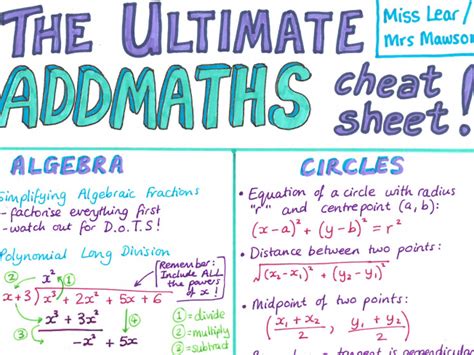 THE ULTIMATE
ADDMATHS cheat sheet!
Miss Lear/
Mrs Mawson
ALGEBRA
Simplifying Algebraic Fractions
- factorise everything first
- watch out for D.O.T.S!
Polynomial Long Division
Remember:
Include ALL
the powers
of x!
② x² ①
x+3 ) x³ + 2x² + 5x + 6
x³ + 3x²
③ -x² + 5x
① = divide
② = multiply
③ = subtract
CIRCLES
• Equation of a circle with radius
"r" and centrepoint (a, b):
(x-a)² + (y-b)² = r²
• Distance between two points:
√(x₂-x₁)² + (y₂-y₁)²
• Midpoint of two points:
(x₁ + x₂ / 2, y₁ + y₂ / 2)
• is perpendicular